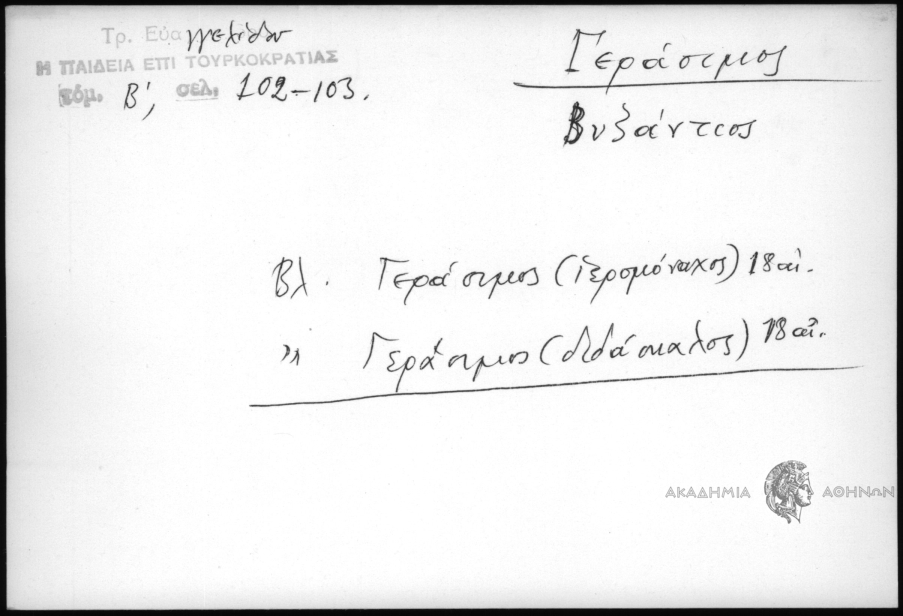 Τρ. Εὐαγγελίδου
Η ΠΑΙΔΕΙΑ ΕΠΙ ΤΟΥΡΚΟΚΡΑΤΙΑΣ
τόμ. Β', σελ. 102-103.
Γεράσιμος
Βυζάντιος
Βλ. Γεράσιμος (ἱερομόναχος) 18 αἰ.
" Γεράσιμος (διδάσκαλος) 18 αἰ.
ΑΚΑΔΗΜΙΑ ΑΘΗΝΩΝ